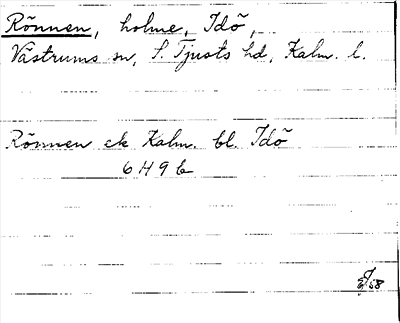 Rönnen, holme, Idö,
Västrums sn, S. Tjusts hd, Kalm. l.
Rönnen ek Kalm. bl. Idö
6H9b